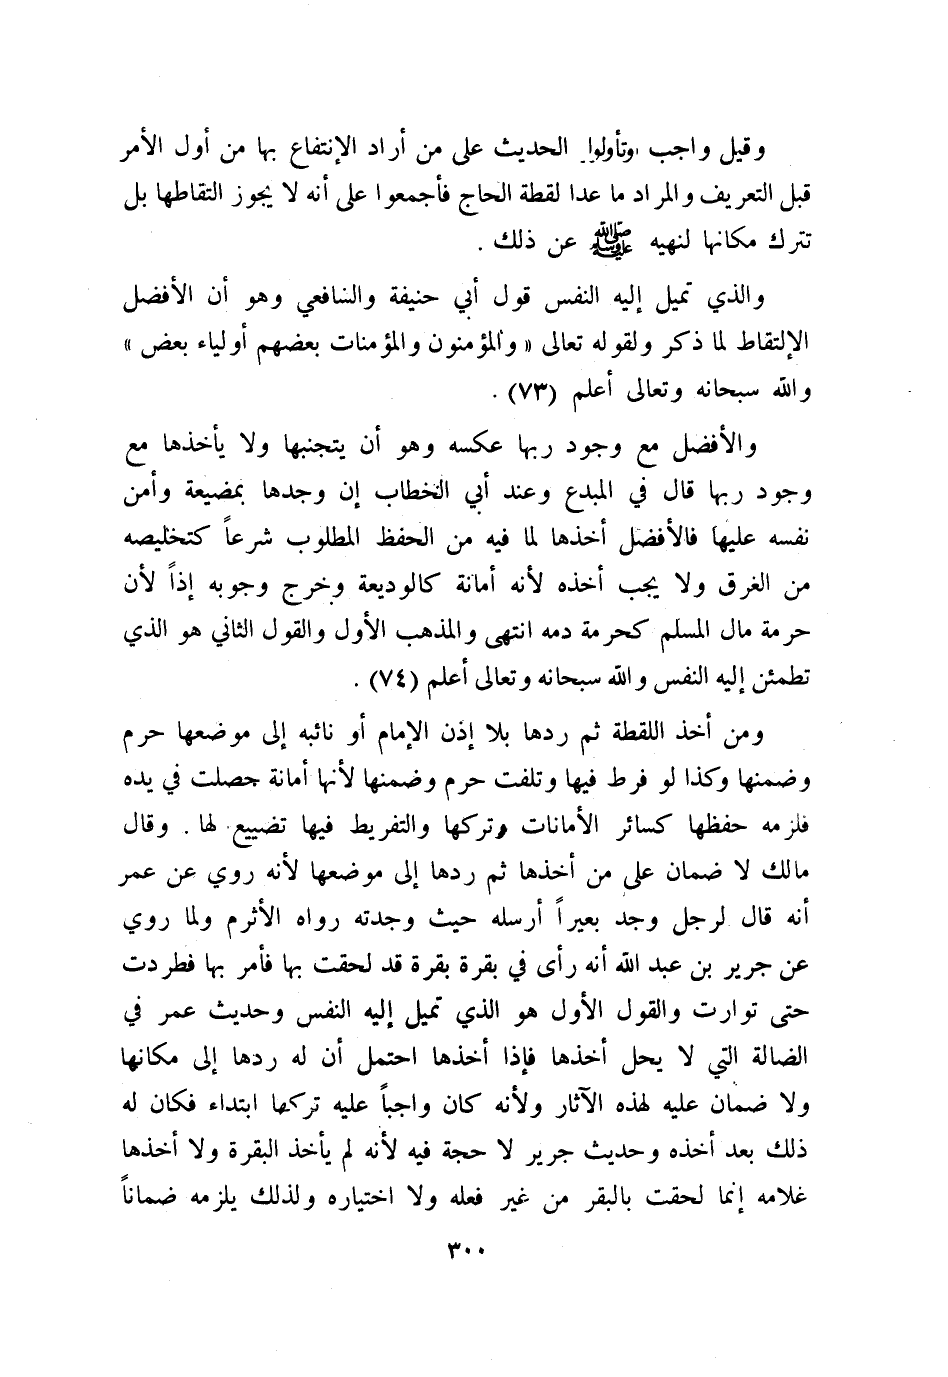 وقيل واجب وتأولوا الحديث على من أراد الإنتفاع بها من أول الأمر
قبل التعريف والمراد ما عدا لقطة الحاج فأجمعوا على أنه لا يجوز التقاطها بل
تترك مكانها لنهيه ﷺ عن ذلك .
والذي تميل إليه النفس قول أبي حنيفة والشافعي وهو أن الأفضل
الإلتقاط لما ذكر ولقوله تعالى « والمؤمنون والمؤمنات بعضهم أولياء بعض »
والله سبحانه وتعالى أعلم (٧٣) .
والأفضل مع وجود ربها عكسه وهو أن يتجنبها ولا يأخذها مع
وجود ربها قال في المبدع وعند أبي الخطاب إن وجدها بمضيعة وأمن
نفسه عليها فالأفضل أخذها لما فيه من الحفظ المطلوب شرعاً كتخليصه
من الغرق ولا يجب أخذه لأنه أمانة كالوديعة وخرج وجوبه إذاً لأن
حرمة مال المسلم كحرمة دمه انتهى والمذهب الأول والقول الثاني هو الذي
تطمئن إليه النفس والله سبحانه وتعالى أعلم (٧٤) .
ومن أخذ اللقطة ثم ردها بلا إذن الإمام أو نائبه إلى موضعها حرم
وضمنها وكذا لو فرط فيها وتلفت حرم وضمنها لأنها أمانة حصلت في يده
فلزمه حفظها كسائر الأمانات وتركها والتفريط فيها تضييع لها . وقال
مالك لا ضمان على من أخذها ثم ردها إلى موضعها لأنه روي عن عمر
أنه قال لرجل وجد بعيراً أرسله حيث وجدته رواه الأثرم ولما روي
عن جرير بن عبد الله أنه رأى في بقرة بقرة قد لحقت بها فأمر بها فطردت
حتى توارت والقول الأول هو الذي تميل إليه النفس وحديث عمر في
الضالة التي لا يحل أخذها فإذا أخذها احتمل أن له ردها إلى مكانها
ولا ضمان عليه لهذه الآثار ولأنه كان واجباً عليه تركها ابتداء فكان له
ذلك بعد أخذه وحديث جرير لا حجة فيه لأنه لم يأخذ البقرة ولا أخذها
غلامه إنما لحقت بالبقر من غير فعله ولا اختياره ولذلك يلزمه ضماناً
٣٠٠